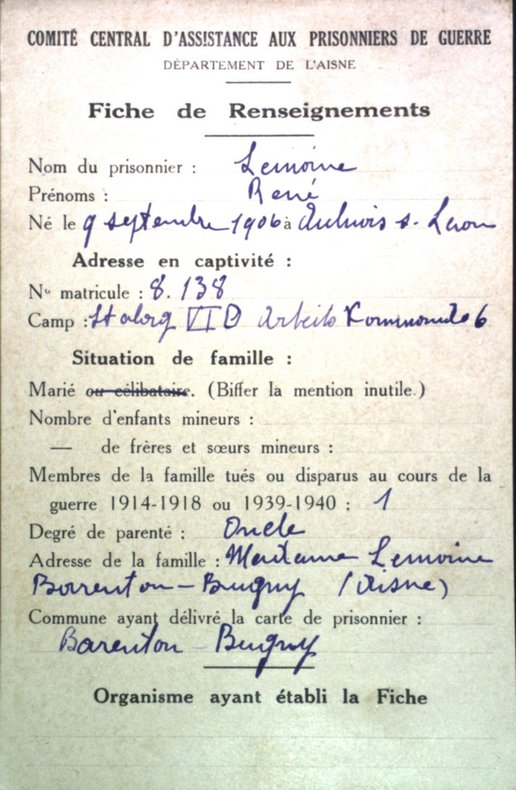 COMITÉ CENTRAL D'ASSISTANCE AUX PRISONNIERS DE GUERRE
DÉPARTEMENT DE L'AISNE
Fiche de Renseignements
Nom du prisonnier : Lemoine
Prénoms : René
Né le 9 septembre 1906 à Aulnois s. Laon
Adresse en captivité :
No matricule : 8.138
Camp : Stalag VI D Arbeits Kommando 6
Situation de famille :
Marié ou célibataire. (Biffer la mention inutile.)
Nombre d'enfants mineurs :
— de frères et sœurs mineurs :
Membres de la famille tués ou disparus au cours de la
guerre 1914-1918 ou 1939-1940 : 1
Degré de parenté : Oncle
Adresse de la famille : Madame Lemoine
Barenton - Bugny (Aisne)
Commune ayant délivré la carte de prisonnier :
Barenton - Bugny
Organisme ayant établi la Fiche